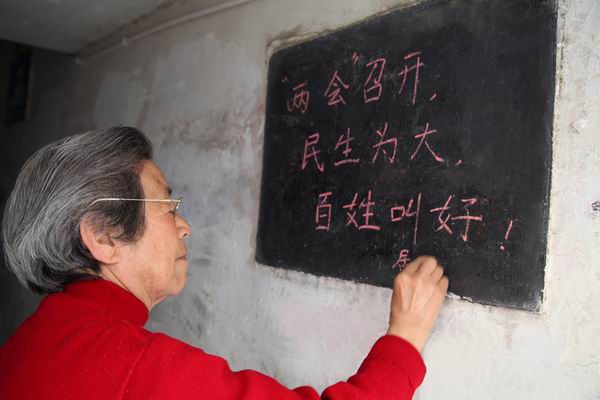 “两会”召开，
民生为大，
百姓叫好！
居